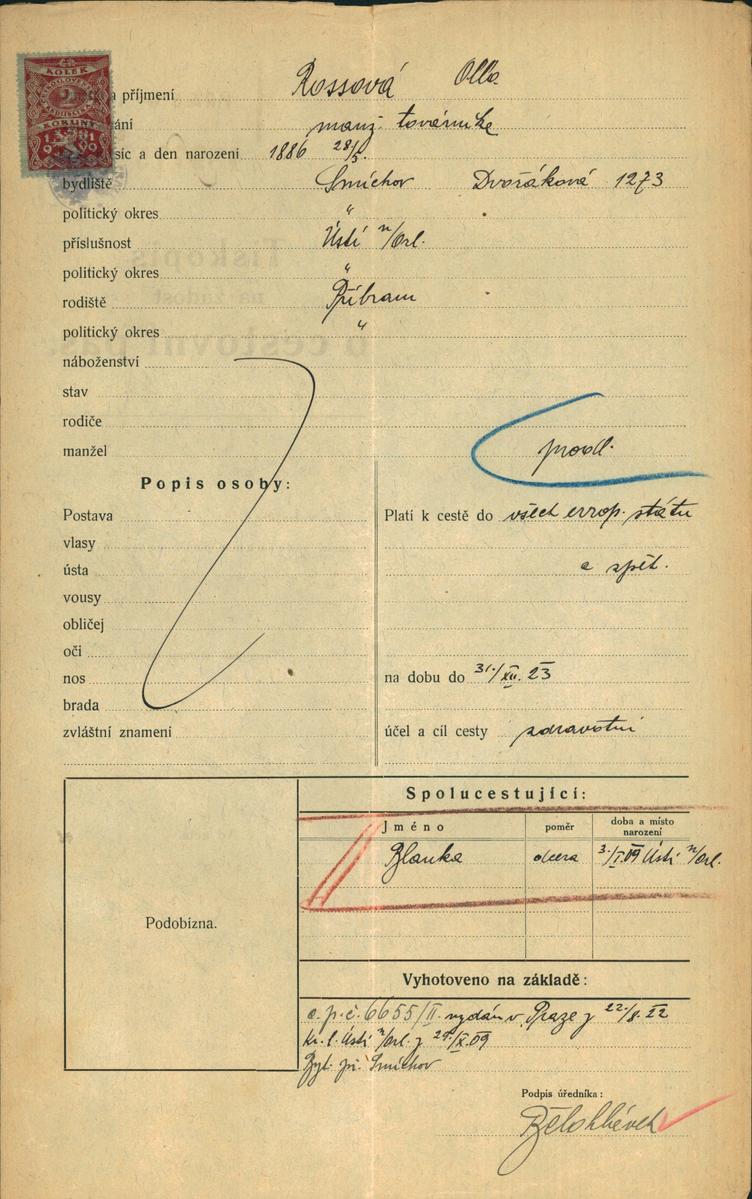 KOLEK
2
KORUNY
19 19
a příjmení Rossová Olla
ání manž. továrníka
síc a den narození 1886 28/5.
bydliště Smíchov Dvořáková 1273
politický okres "
příslušnost Ústí n/Orl.
politický okres "
rodiště Příbram
politický okres "
náboženství
stav
rodiče
manžel prodl.
Popis osoby:
Postava
vlasy
ústa
vousy
obličej
oči
nos
brada
zvláštní znamení
Platí k cestě do všech evrop. států
a zpět.
na dobu do 31./XII. 23
účel a cíl cesty zdravotní
Podobizna.
Spolucestující:
Jméno poměr doba a místo narození
Blanka dcera 3./I.09 Ústí n/Orl.
Vyhotoveno na základě:
c. p. č. 6655/II. vydán v Praze z 22./8. 22
Kr. l. Ústí n/Orl. z 29./X.09
Byt. př. Smíchov
Podpis úředníka:
Bělohlávek